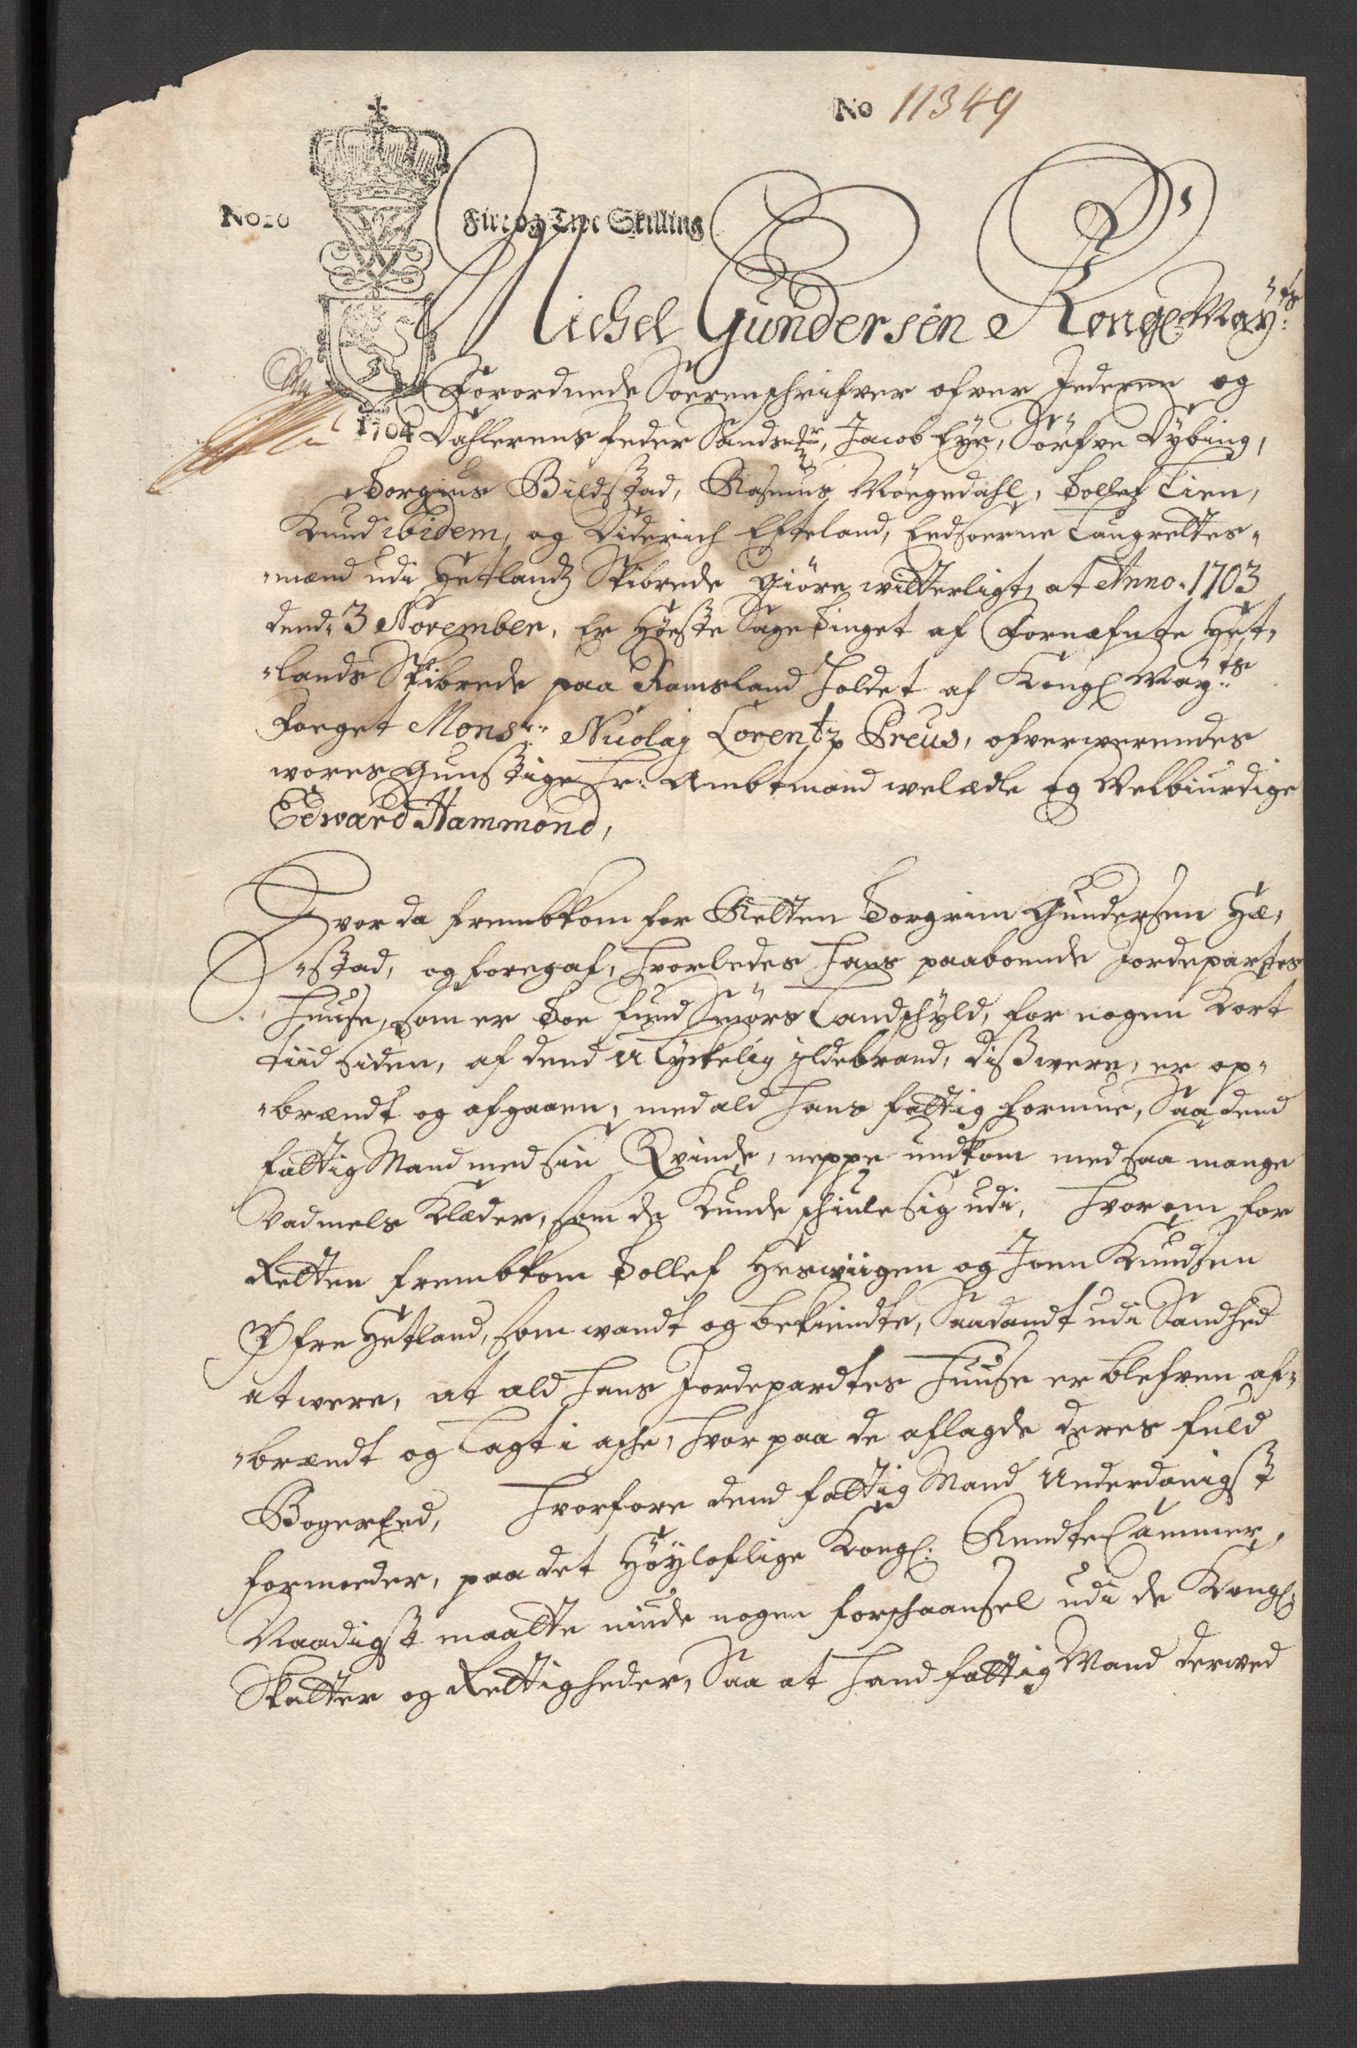 No 11349
No 20
Fire og Tive Skilling
1704
Michel Gundersen Kongl: Mayts:
Forordnede Sorenschrifver ofver Jederen og
Dahlerens Peder Sandsmr, Jacob Eye, Sörfve Dybing,
Torgius Bildstad, Rasmus Mörgedahl, Tollef Lien,
Knud ibidem, og Diderich Efteland, Eedsorne Laugrettes-
mænd udi Hetlandz Skibrede Giöre witterligt, at Anno. 1703
dend. 3 November, Er Höste Sage Tinget af Fornæfnte Het-
lands Skibrede paa Ramsland Holdet af Kongl Mayts:
Foeget Monsr. Nicolaj Lorentz Preus, ofverwerendes
wores Gunstige Hr: Ambtmand welædle og Velbiurdige
Edward Hammond,
Hvor da frembkom for Retten Torgrim Gundersen Hæ-
stad, og foregaf, hvorledes hans paaboende Jordeparttes
Huuse, som er Toe Pund Smörs Landschyld, for nogen kort
tiid siden, af dend ulyckelig ildebrand, dissvere, er op-
brændt og afgaaen, med ald hans fattig formue, Saa dend
fattig Mand med sin Qvinde, neppe undkom med saa mange
Vadmels Klæder, som de kunde schiule sig udi, Hvorom for
Retten frembkom Tollef Heswiigen og Joen Knudsen
Öfre Hetland, som wandt og bekiendte, Saadandt udi Sandhed
at were, at ald hans Jordepardtes Huuse er blefven af-
brændt og lagt i asche, hvor paa de aflagde deres fuld
Boger Eed, Hvorfore dend fattig Mand Underdanigst
formoeder, paa det Höyloflige Kongl: Rendte Cammer,
Naadigst maatte niude nogen forschaansel udi de Kongl:
Skatter og Rettigheder, Saa at hand fattig Mand derved